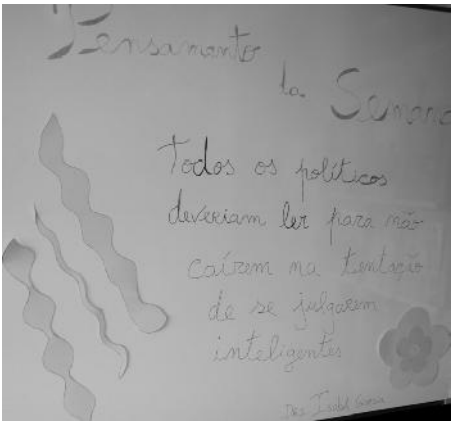 Pensamento
da Semana
Todos os políticos
deveriam ler para não
caírem na tentação
de se julgarem
inteligentes
Dra. Isabel